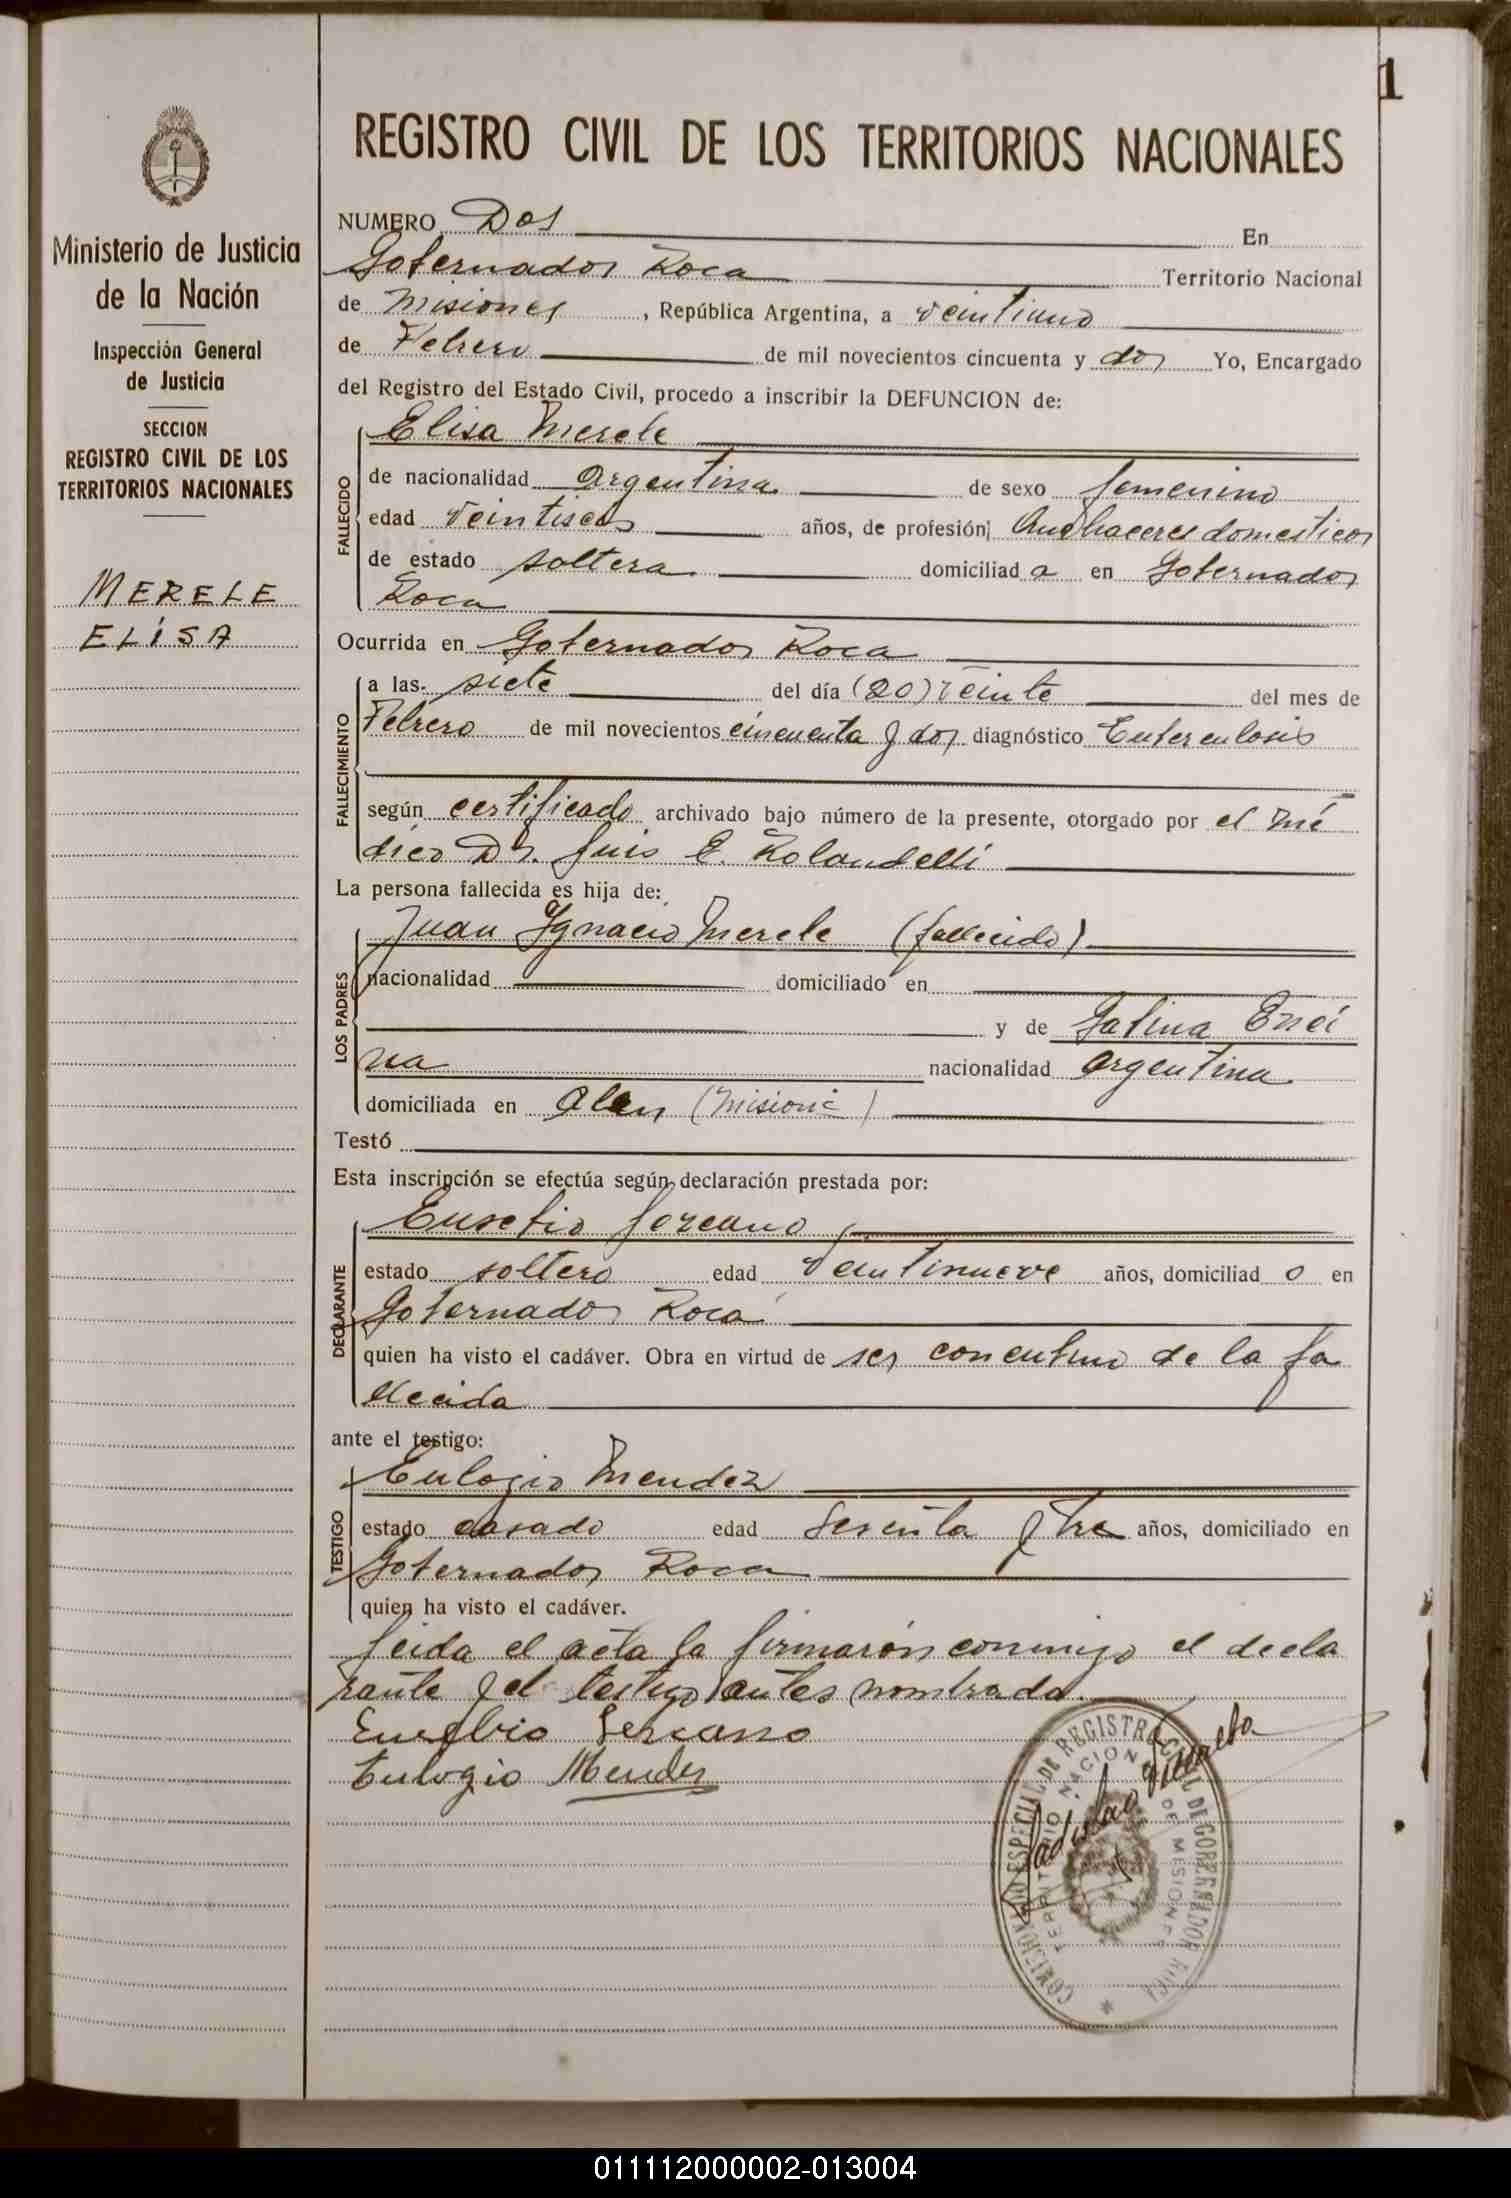 1
REGISTRO CIVIL DE LOS TERRITORIOS NACIONALES
Ministerio de Justicia
de la Nación
Inspección General
de Justicia
SECCION
REGISTRO CIVIL DE LOS
TERRITORIOS NACIONALES
MERELE
ELÍSA
NUMERO Dos En
Gobernador Roca Territorio Nacional
de Misiones, República Argentina, a veintiuno
de Febrero de mil novecientos cincuenta y dos Yo, Encargado
del Registro del Estado Civil, procedo a inscribir la DEFUNCION de:
Elisa Merele
FALLECIDO
de nacionalidad Argentina de sexo femenino
edad veintiseis años, de profesión quehaceres domesticos
de estado soltera domiciliada en Gobernador
Roca
Ocurrida en Gobernador Roca
FALLECIMIENTO
a las siete del día (20) veinte del mes de
Febrero de mil novecientos cincuenta y dos diagnóstico Tuberculosis
según certificado archivado bajo número de la presente, otorgado por el mé
dico Dr. Luis E. Rolandelli
La persona fallecida es hija de:
LOS PADRES
Juan Ygnacio Merele (fallecido)
nacionalidad domiciliado en
y de
nacionalidad Argentina
domiciliada en Alen (Misione)
Testó
Esta inscripción se efectúa según declaración prestada por:
DECLARANTE
Eusebio Lezcano
estado soltero edad veintinueve años, domiciliado en
Gobernador Roca
quien ha visto el cadáver. Obra en virtud de ser concubino de la fa
llecida
ante el testigo:
TESTIGO
Eulogio Mendez
estado casado edad Sesenta y tre años, domiciliado en
Gobernador Roca
quien ha visto el cadáver.
Leida el acta la firmarón conmigo el decla
rante y el testigo antes nombrado.
Eusebio Lercano
Eulogio Mendez
Ladislao
COMISIONADO ESPECIAL DE REGISTRO CIVIL DE GOBERNADOR ROCA
TERRITORIO NACIONAL DE MISIONES
011112000002-013004